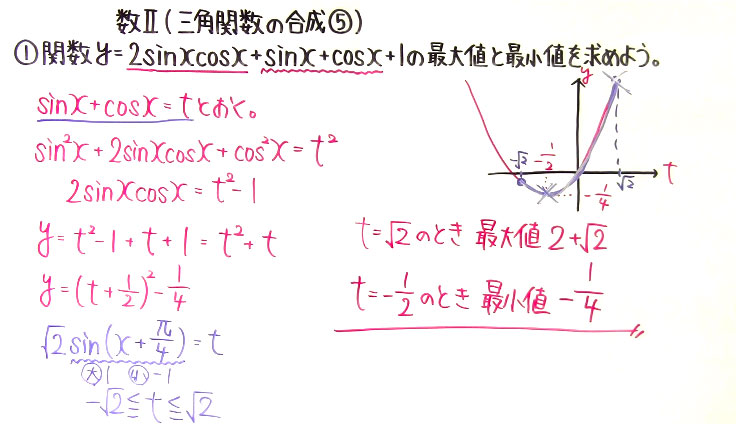 数Ⅱ(三角関数の合成⑤)
①関数y=2sinxcosx+sinx+cosx+1の最大値と最小値を求めよう。
sinx+cosx=tとおく。
sin²x+2sinxcosx+cos²x=t²
2sinxcosx=t²-1
y=t²-1+t+1=t²+t
y=(t+1/2)²-1/4
√2sin(x+π/4)=t
大1 小-1
-√2≦t≦√2
y
-√2 -1/2
t
-1/4
√2
t=√2のとき 最大値2+√2
t=-1/2のとき 最小値-1/4